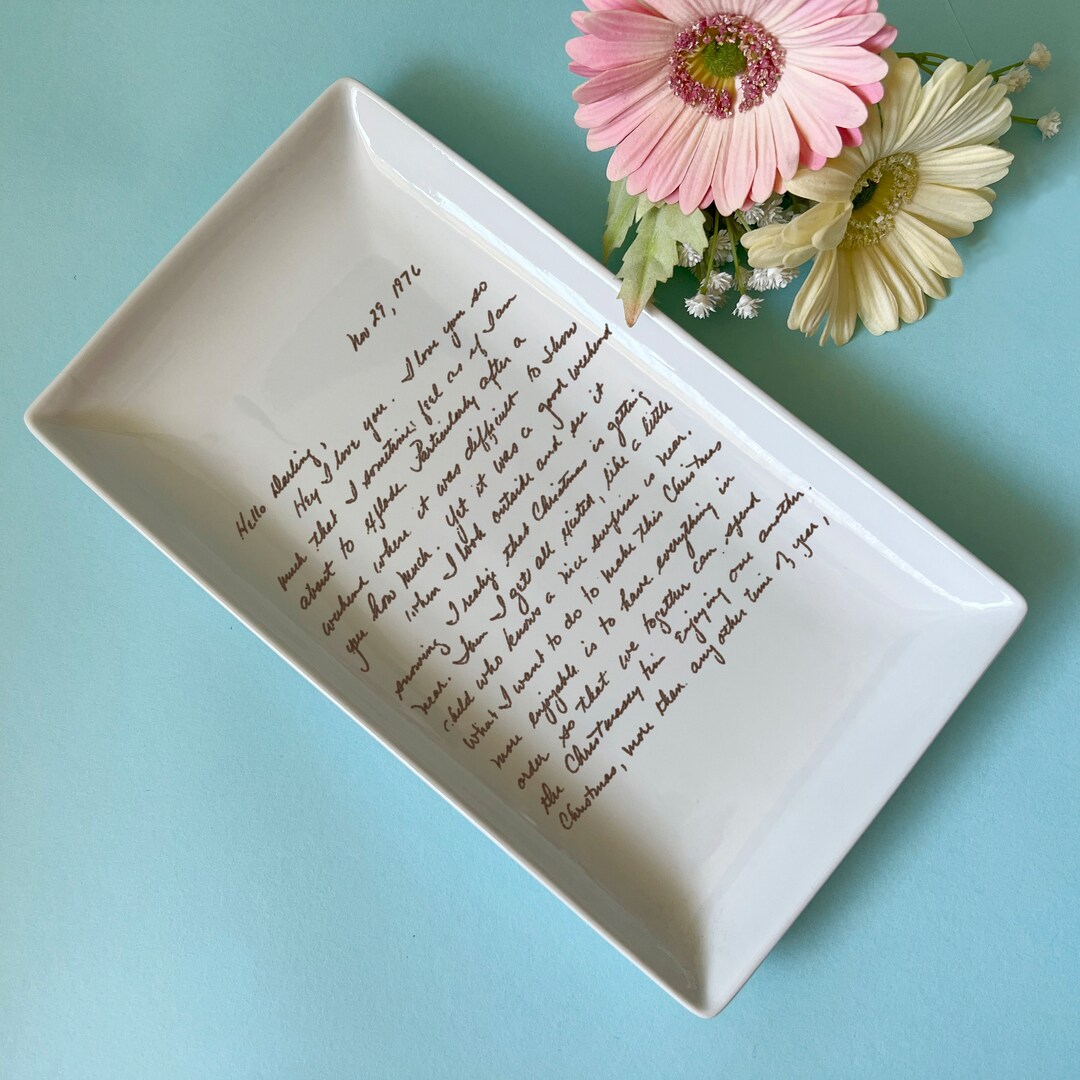 Nov 29, 1976
Hello Darling,
Hey I love you. I love you so
much that I sometimes feel as if I am
about to explode. Particularly after a
weekend where it was difficult to show
you how much. Yet it was a good weekend
When I look outside and see it
snowing I realize that Christmas is getting
near. Then I get all excited, like a little
child who knows a nice surprise is near.
What I want to do to make this Christmas
more enjoyable is to have everything in
order so that we together can spend
the Christmas enjoying one another.
Christmas, more than any other time of year,